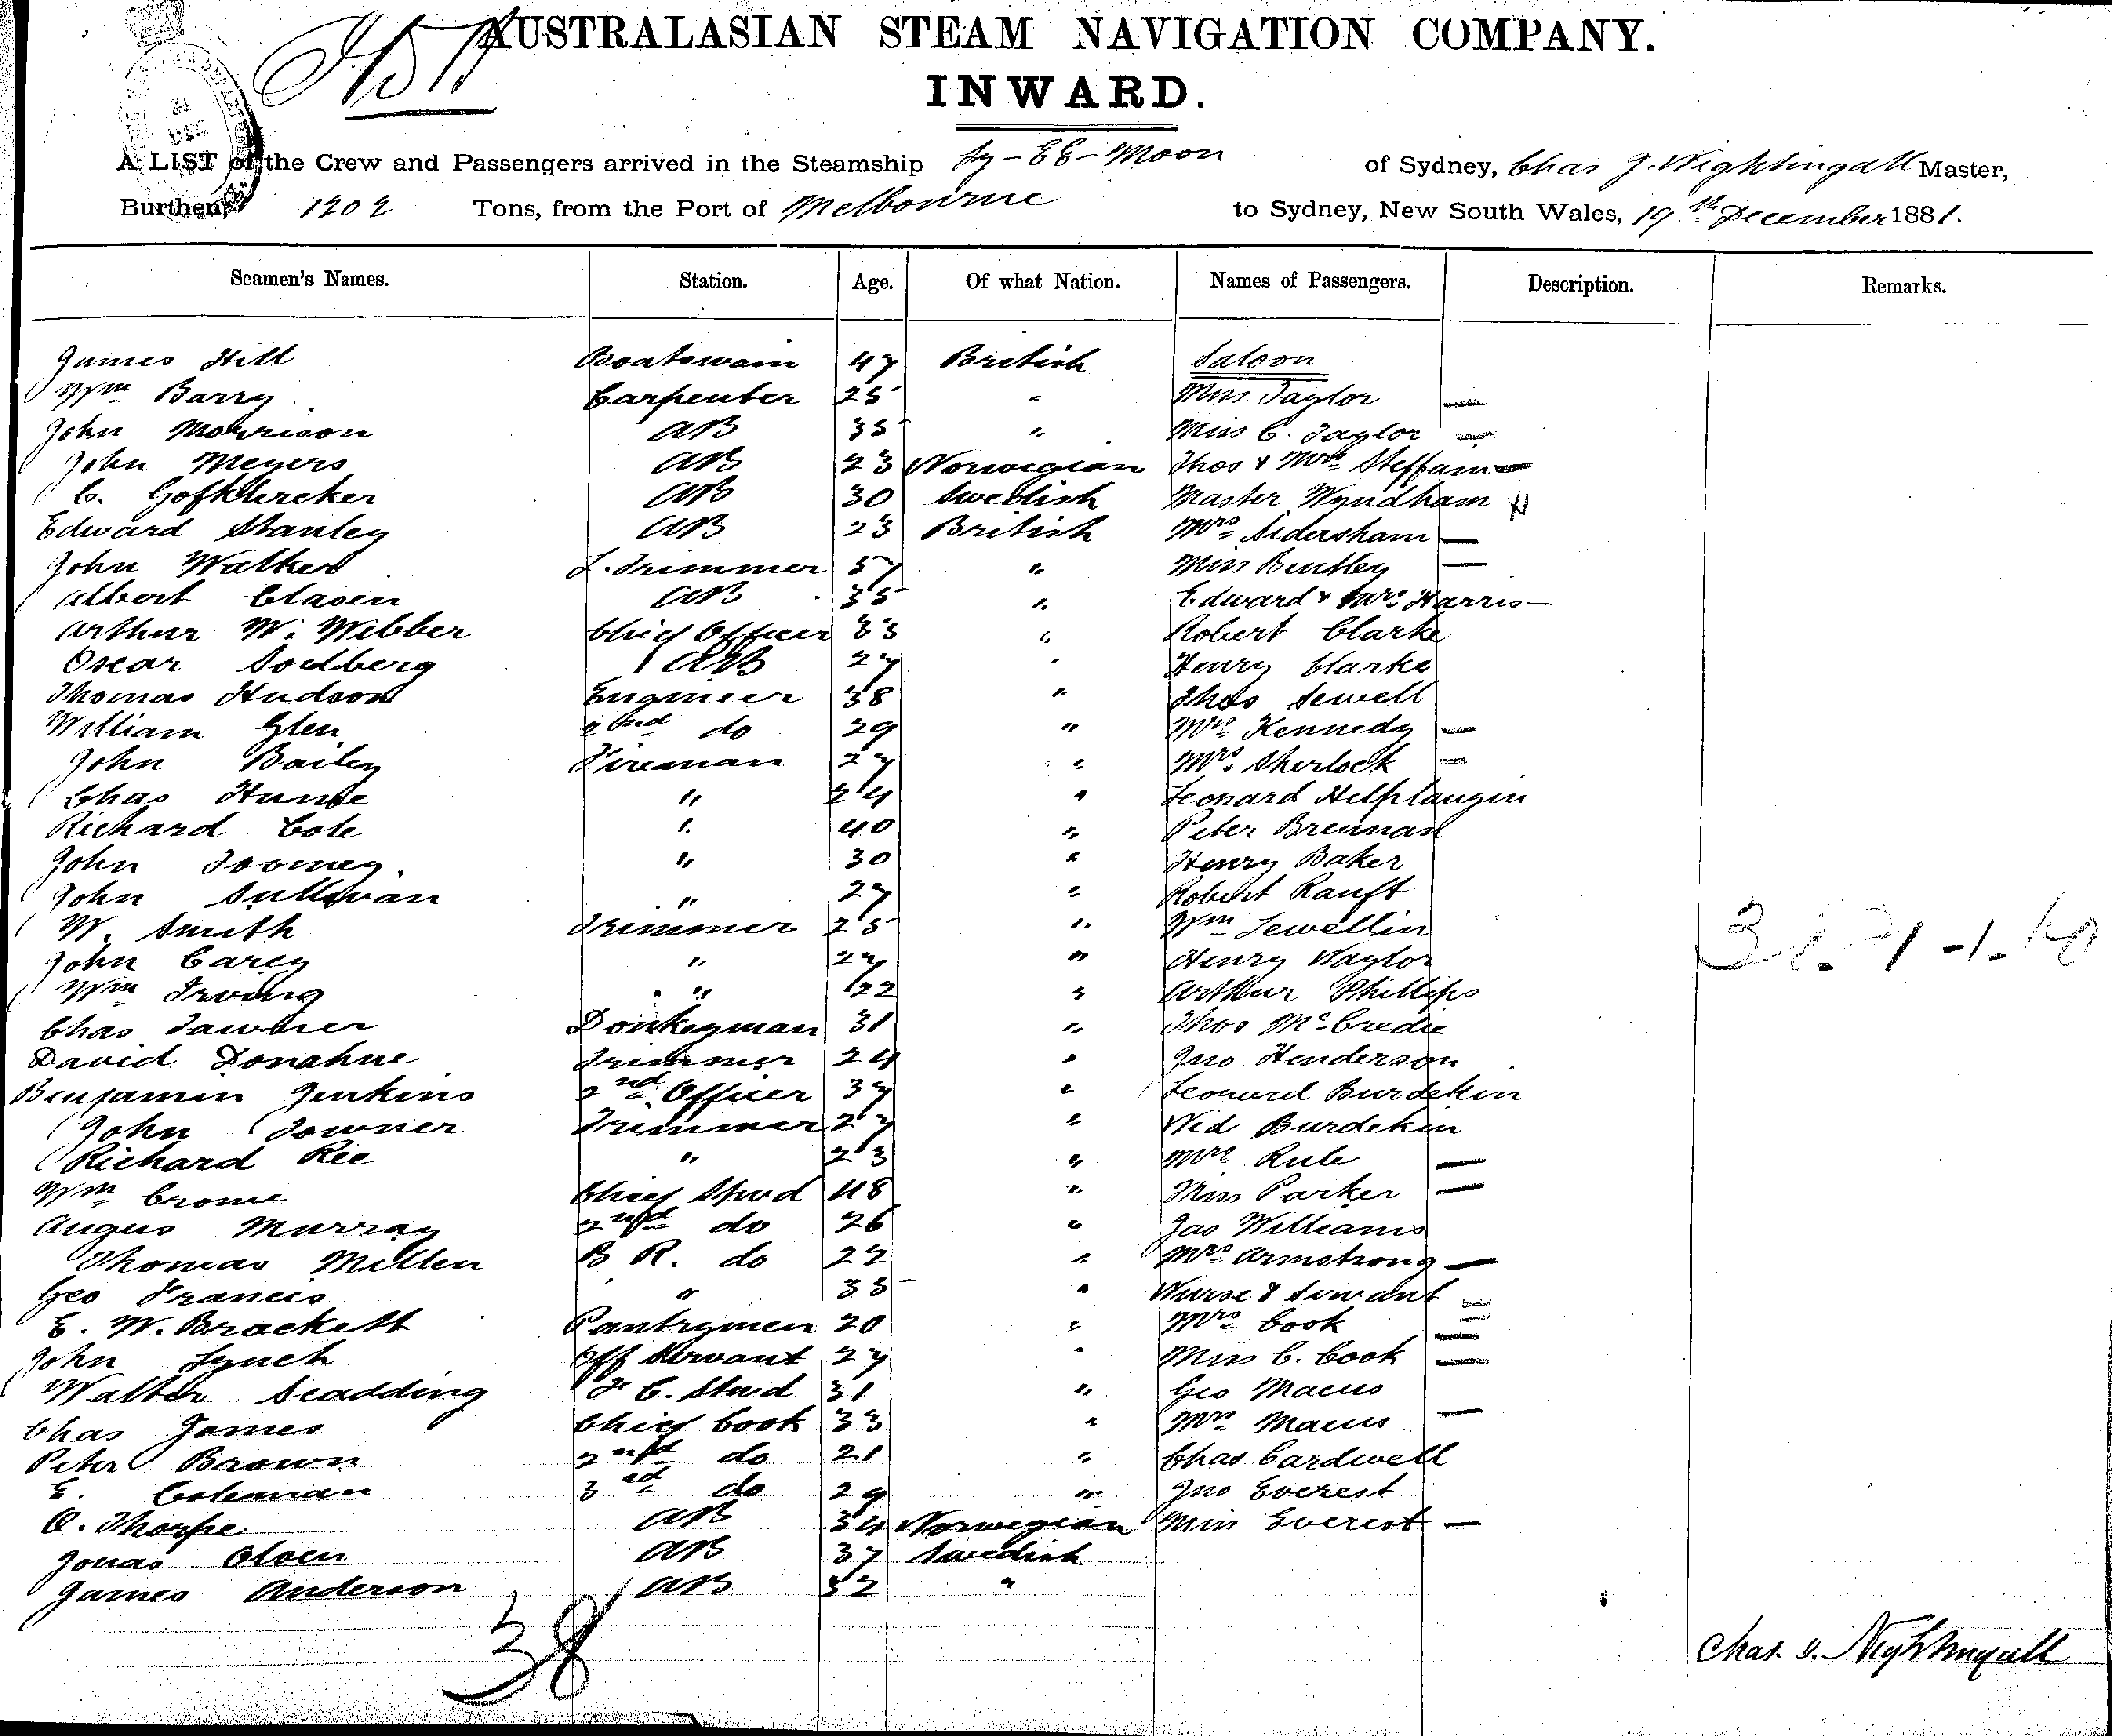 AUSTRALASIAN STEAM NAVIGATION COMPANY.
INWARD.
A LIST of the Crew and Passengers arrived in the Steamship Ly-EE-Moon of Sydney, Chas J. Nightingall Master,
Burthen, 1202 Tons, from the Port of Melbourne to Sydney, New South Wales, 19th December 1881.
Seamen's Names. Station. Age. Of what Nation. Names of Passengers. Description. Remarks.
James Hill Boatswain 47 British Saloon
Wm Barry Carpenter 25 " Miss Taylor —
John Morrison AB 35 " Miss C. Taylor —
John Meyers AB 23 Norwegian Thos & Mrs —
C. AB 30 Swedish Master Wyndham
Edward Stanley AB 23 British Mrs —
John Walker L. Trimmer 57 " Miss Bentley —
Albert Clasen AB 35 " Edward & Mrs Harris —
Arthur W. Webber Chief Officer 33 " Robert Clarke
Oscar Sodberg AB 27 " Henry Clarke
Thomas Hudson Engineer 38 " Thos Sewell
William Glen 2nd do 29 " Mrs Kennedy —
John Bailey Fireman 27 " Mrs Sherlock —
Chas Hume " 24 " Leonard
Richard Cole " 40 " Peter Brennan
John Toomey " 30 " Henry Baker
John Sullivan " 27 " Robert Ranft
W. Smith Trimmer 25 " Wm Lewellin
John Carey " 27 " Henry Naylor
Wm Irving " 22 " Arthur Phillips
Chas Donkeyman 31 " Thos McCredie
David Donahue Trimmer 24 " Jno Henderson
Benjamin Jenkins 2nd Officer 37 " Leonard Burdekin
John Towner Trimmer 27 " Ned Burdekin
Richard Ree " 23 " Mrs Rule —
Wm Crome Chief Stwd 48 " Miss Parker —
Angus Murray 2nd do 26 " Jas Williams
Thomas Millen B. R. do 22 " Mrs Armstrong —
Geo Francis " 35 " Nurse & Servant —
E. W. Brackett Pantrymen 20 " Mrs Cook —
John Lynch Off Servant 27 " Miss C. Cook —
Walter Scadding F. C. Stwd 31 " Geo Macus
Chas James Chief Cook 33 " Mrs Macus —
Peter Brown 2nd do 21 " Chas Cardwell
E. Coleman 3rd do 29 " Jno Everest
O. Thorpe AB 34 Norwegian Miss Everest —
Jonas Olsen AB 37 Swedish
James Anderson AB 52 "
38
Chas. J. Nightingall